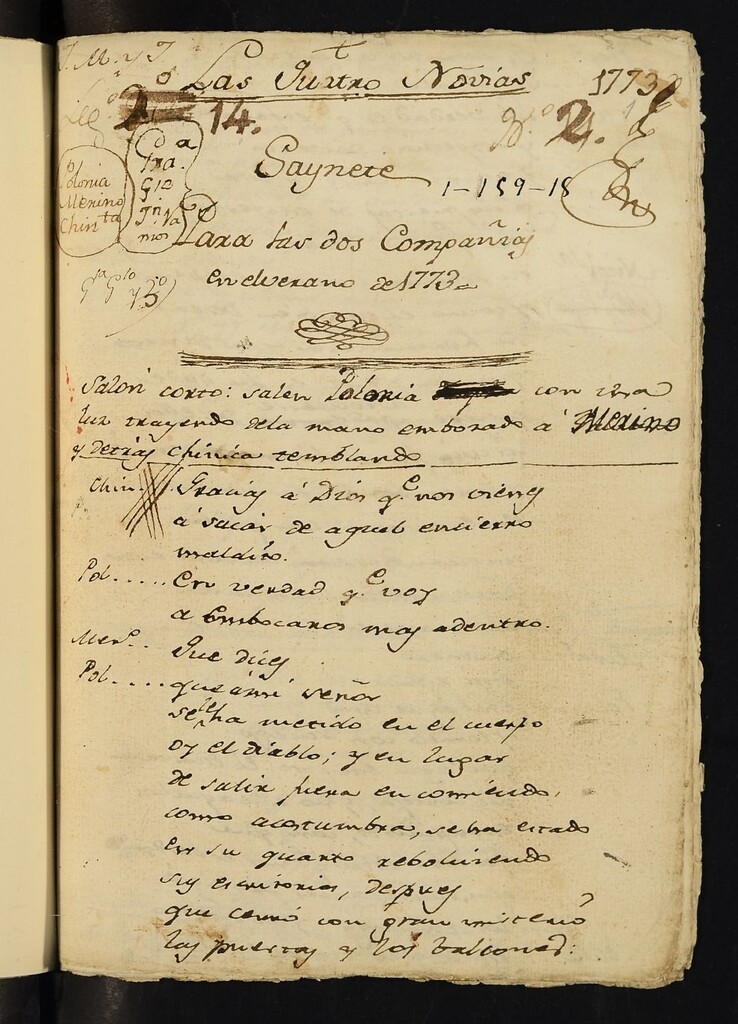 J. M. y J
Las Quatro Novias 1773
Leg.º 14. N.º 2.
Saynete
1-159-18
Polonia
Merino
Chinita
Para las dos Compañias
en el verano de 1773
Salon corto: salen Polonia con una
luz trayendo de la mano embozado á Merino
y detras Chinica temblando
Chin. Gracias á Dios q.e nos vienes
á sacar de aquel encierro
maldito.
Pol..... En verdad q.e voy
a Embocaros mas adentro.
Mer.o.. Que dices
Pol..... que á mi señor
se le ha metido en el cuerpo
oy el diablo; y en lugar
de salir fuera en comiendo,
como acostumbra, se ha estado
en su quarto rebolviendo
sus escritorios, despues
que cerró con gran misterio
las puertas y los balcones: